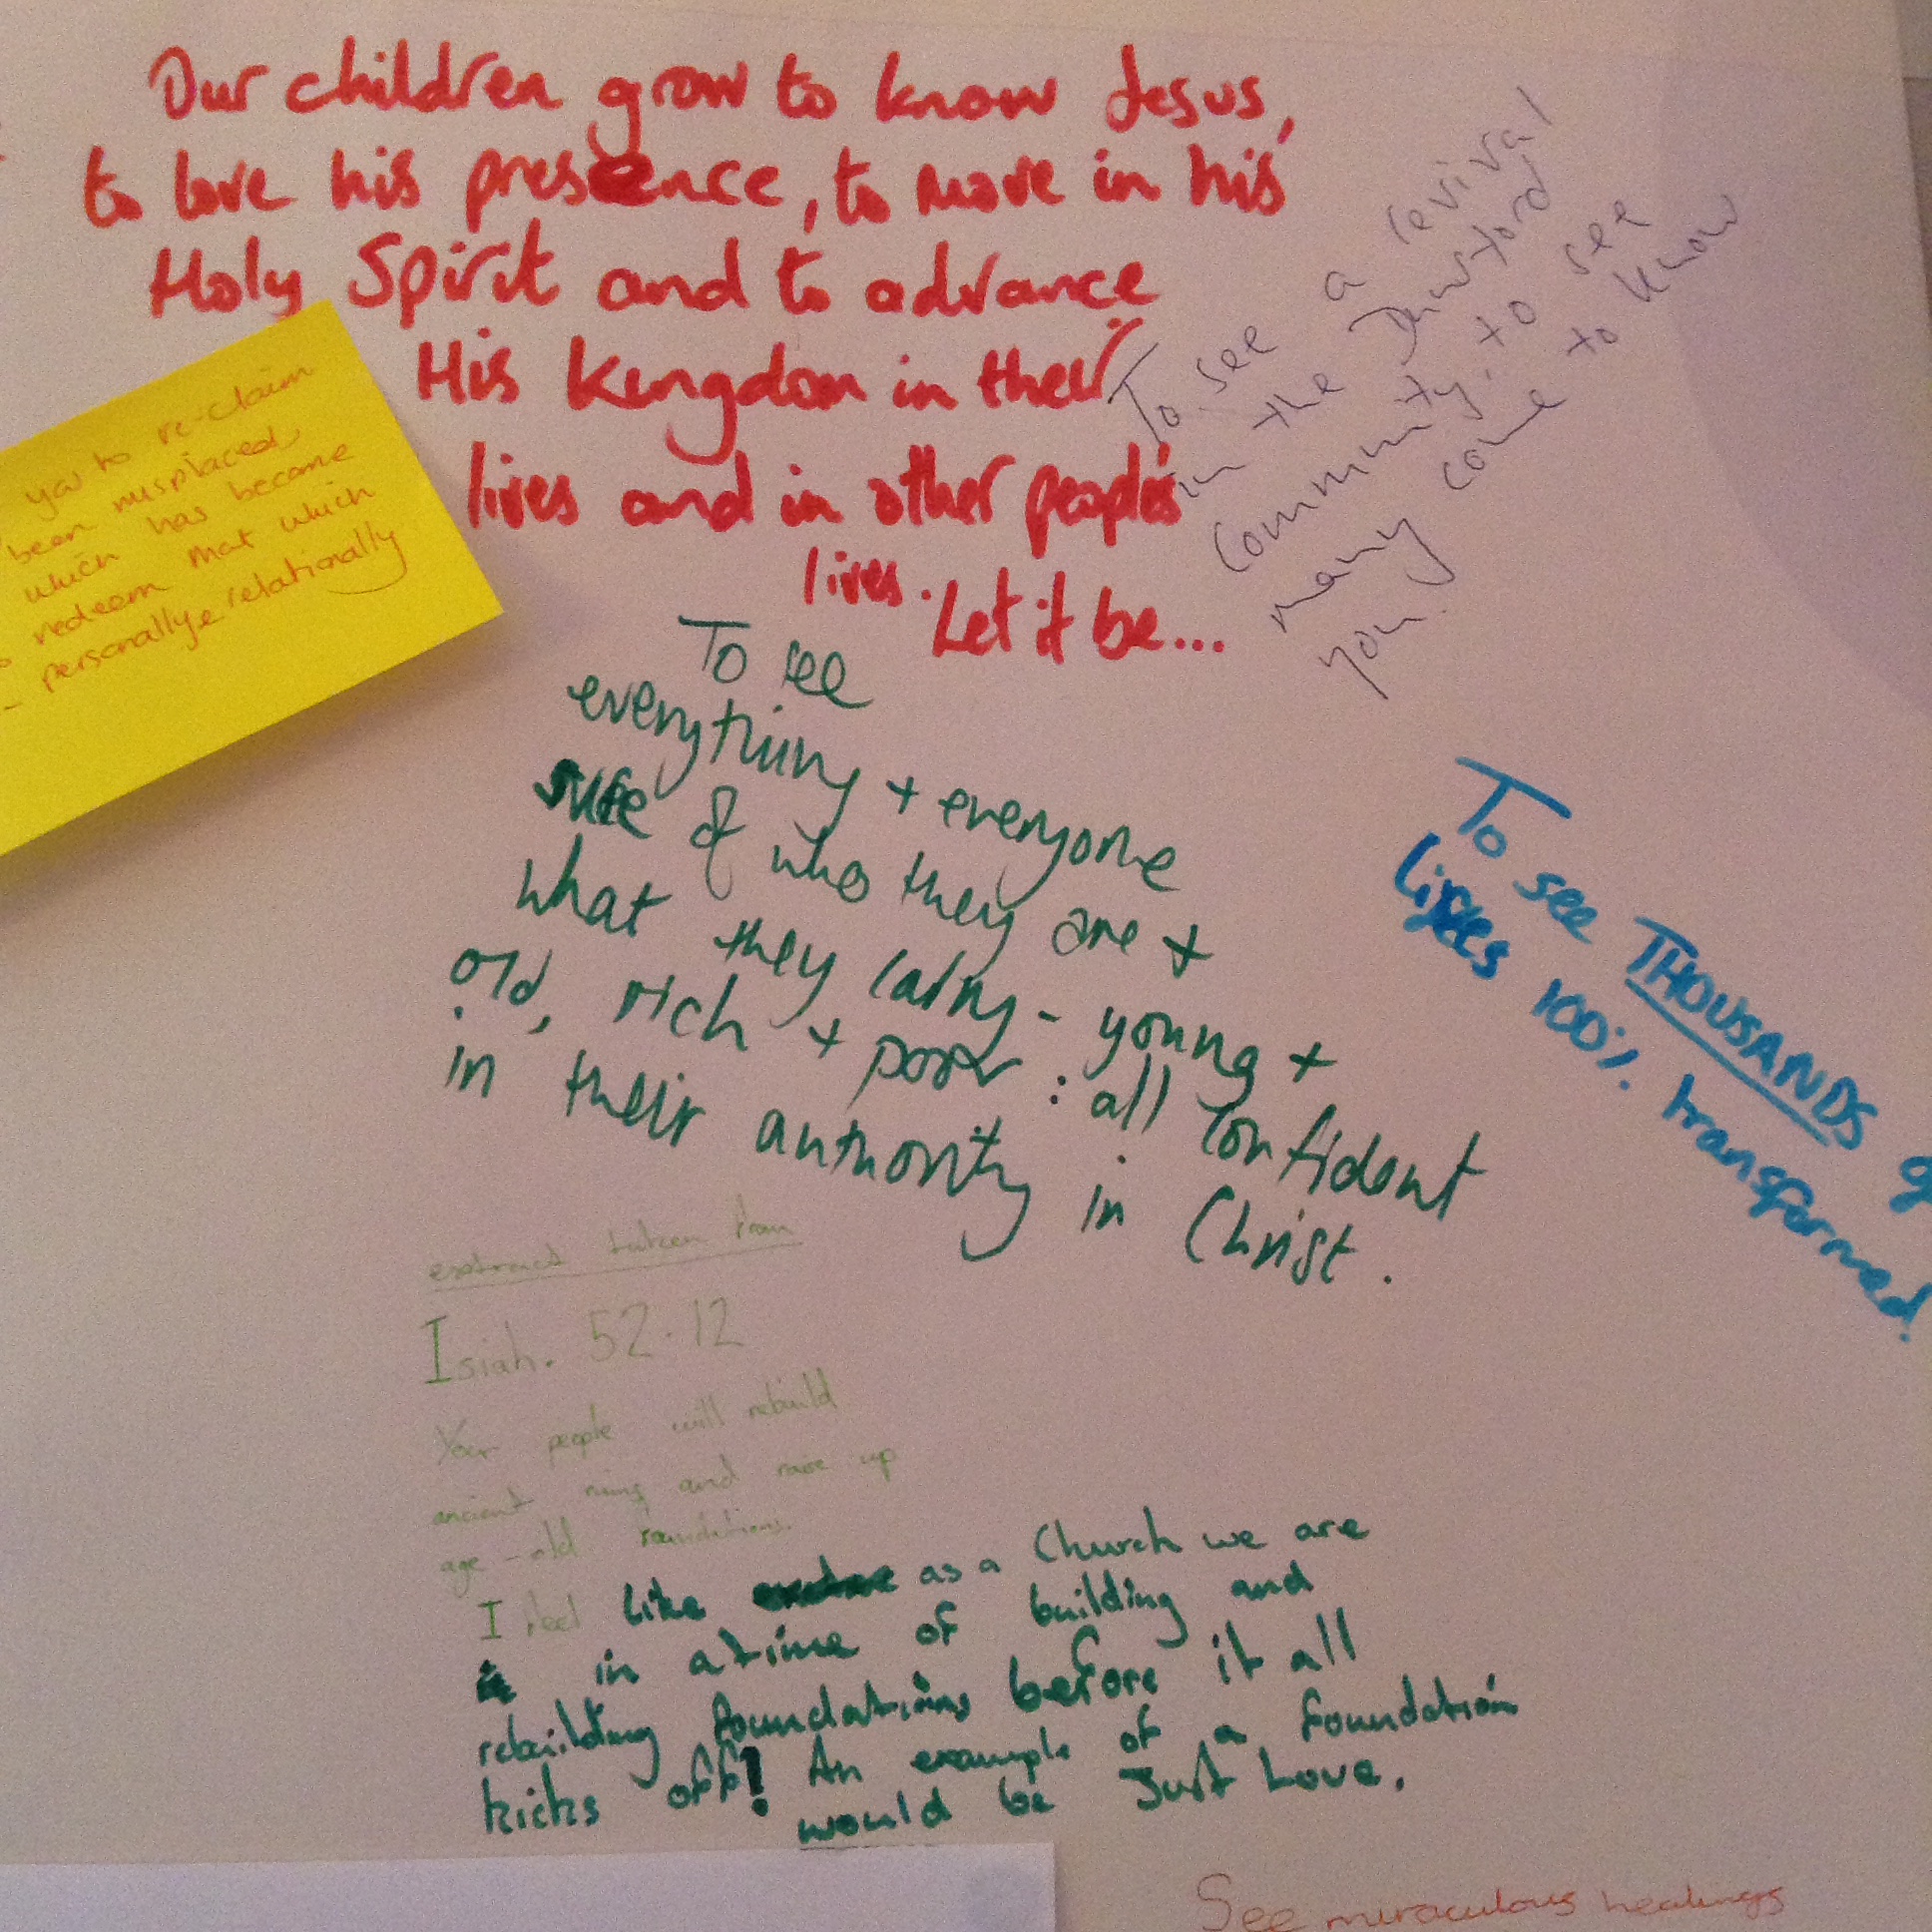 Our children grow to know Jesus,
to love his presence, to move in his
Holy Spirit and to advance
His Kingdom in their
lives and in other people's
lives.
Let it be...
To see a revival
in the
community. to see
many come to know
you.
you to re-claim
been misplaced,
which has become
redeem that which
personally & relationally
To see
everything + everyone
sure of who they are +
what they carry - young +
old, rich + poor : all confident
in their authority in Christ.
To see THOUSANDS of
lives 100% transformed!
extract taken from
Isiah. 52.12
Your people will rebuild
ancient ruins and raise up
age-old foundations.
I feel like as a Church we are
in a time of building and
rebuilding foundations before it all
kicks off! An example of a foundation
would be Just Love.
See miraculous healings